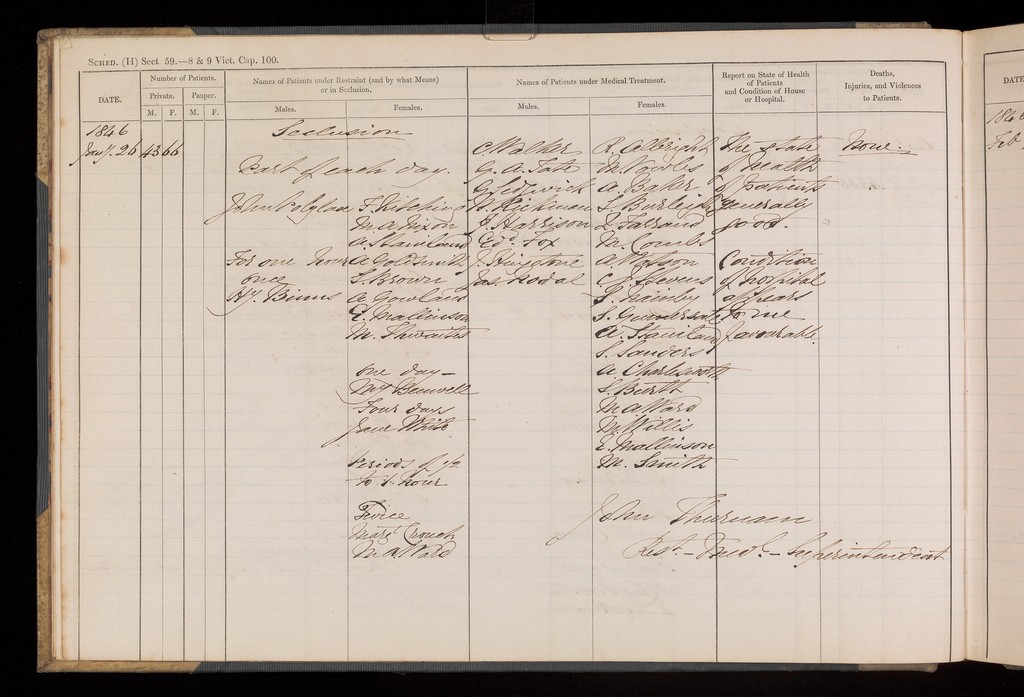 SCHED. (H) Sect. 59.—8 & 9 Vict. Cap. 100.
DATE.
Number of Patients.
Private. Pauper.
M. F. M. F.
Names of Patients under Restraint (and by what Means)
or in Seclusion.
Males. Females.
Names of Patients under Medical Treatment.
Males. Females.
Report on State of Health
of Patients
and Condition of House
or Hospital.
Deaths,
Injuries, and Violences
to Patients.
1846
Jany. 26 43 66
Seclusion
Part of each day.
John
For one hour
once
Hy. Binns
F. Kitching
M A Nixon
A. Staniland
A Goldsmith
S. Brown
A Gowland
E. Mallinson
M. Thwaites
one day—
My Benwell
Four days
Jane White
Periods of ½
to 1 hour
Twice
Margt Crouch
M A Ward
C. Walker
G. A. Tate
G. Sedgwick
W. Rickman
J. Harrison
Edd. Fox
J. Hingstone
Jas. Hodal
R. Allbright
M. Vowles
A. Baker
S. Burleigh
M. Combs
A. Watson
C. J. Stevens
S. Naimby
S.
A. Staniland
S. Sanders
A. Charlesworth
S. Burtt
M A Ward
M. Willis
E. Mallinson
M. Smith
The state
of health
of patients
generally
good.
Condition
of hospital
appears
to me
favourable.
None.
John Thurnam
Rest.—Medl.—Superintendent
DATE
1846
Feb